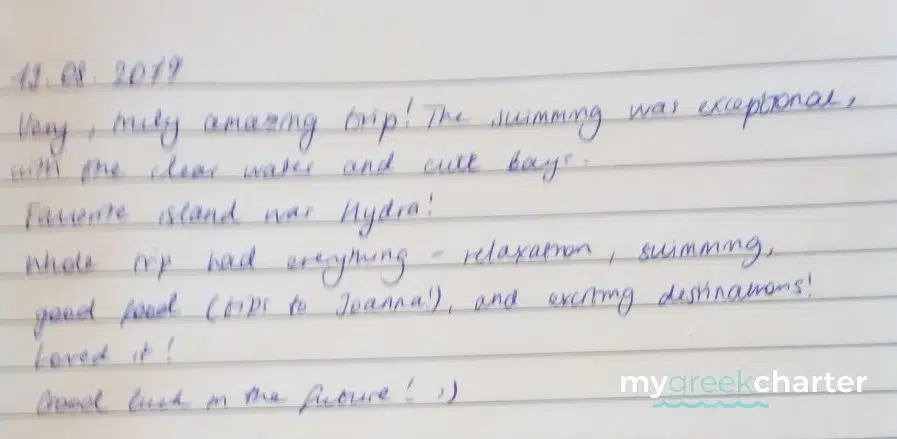 19.08.2019
Very, truly amazing trip! The swimming was exceptional,
with the clear water and cute bays.
Favorite island was Hydra!
Whole trip had everything - relaxation, swimming,
good food (tips to Joanna!), and exciting destinations!
Loved it!
Good luck in the future! :)
mygreekcharter